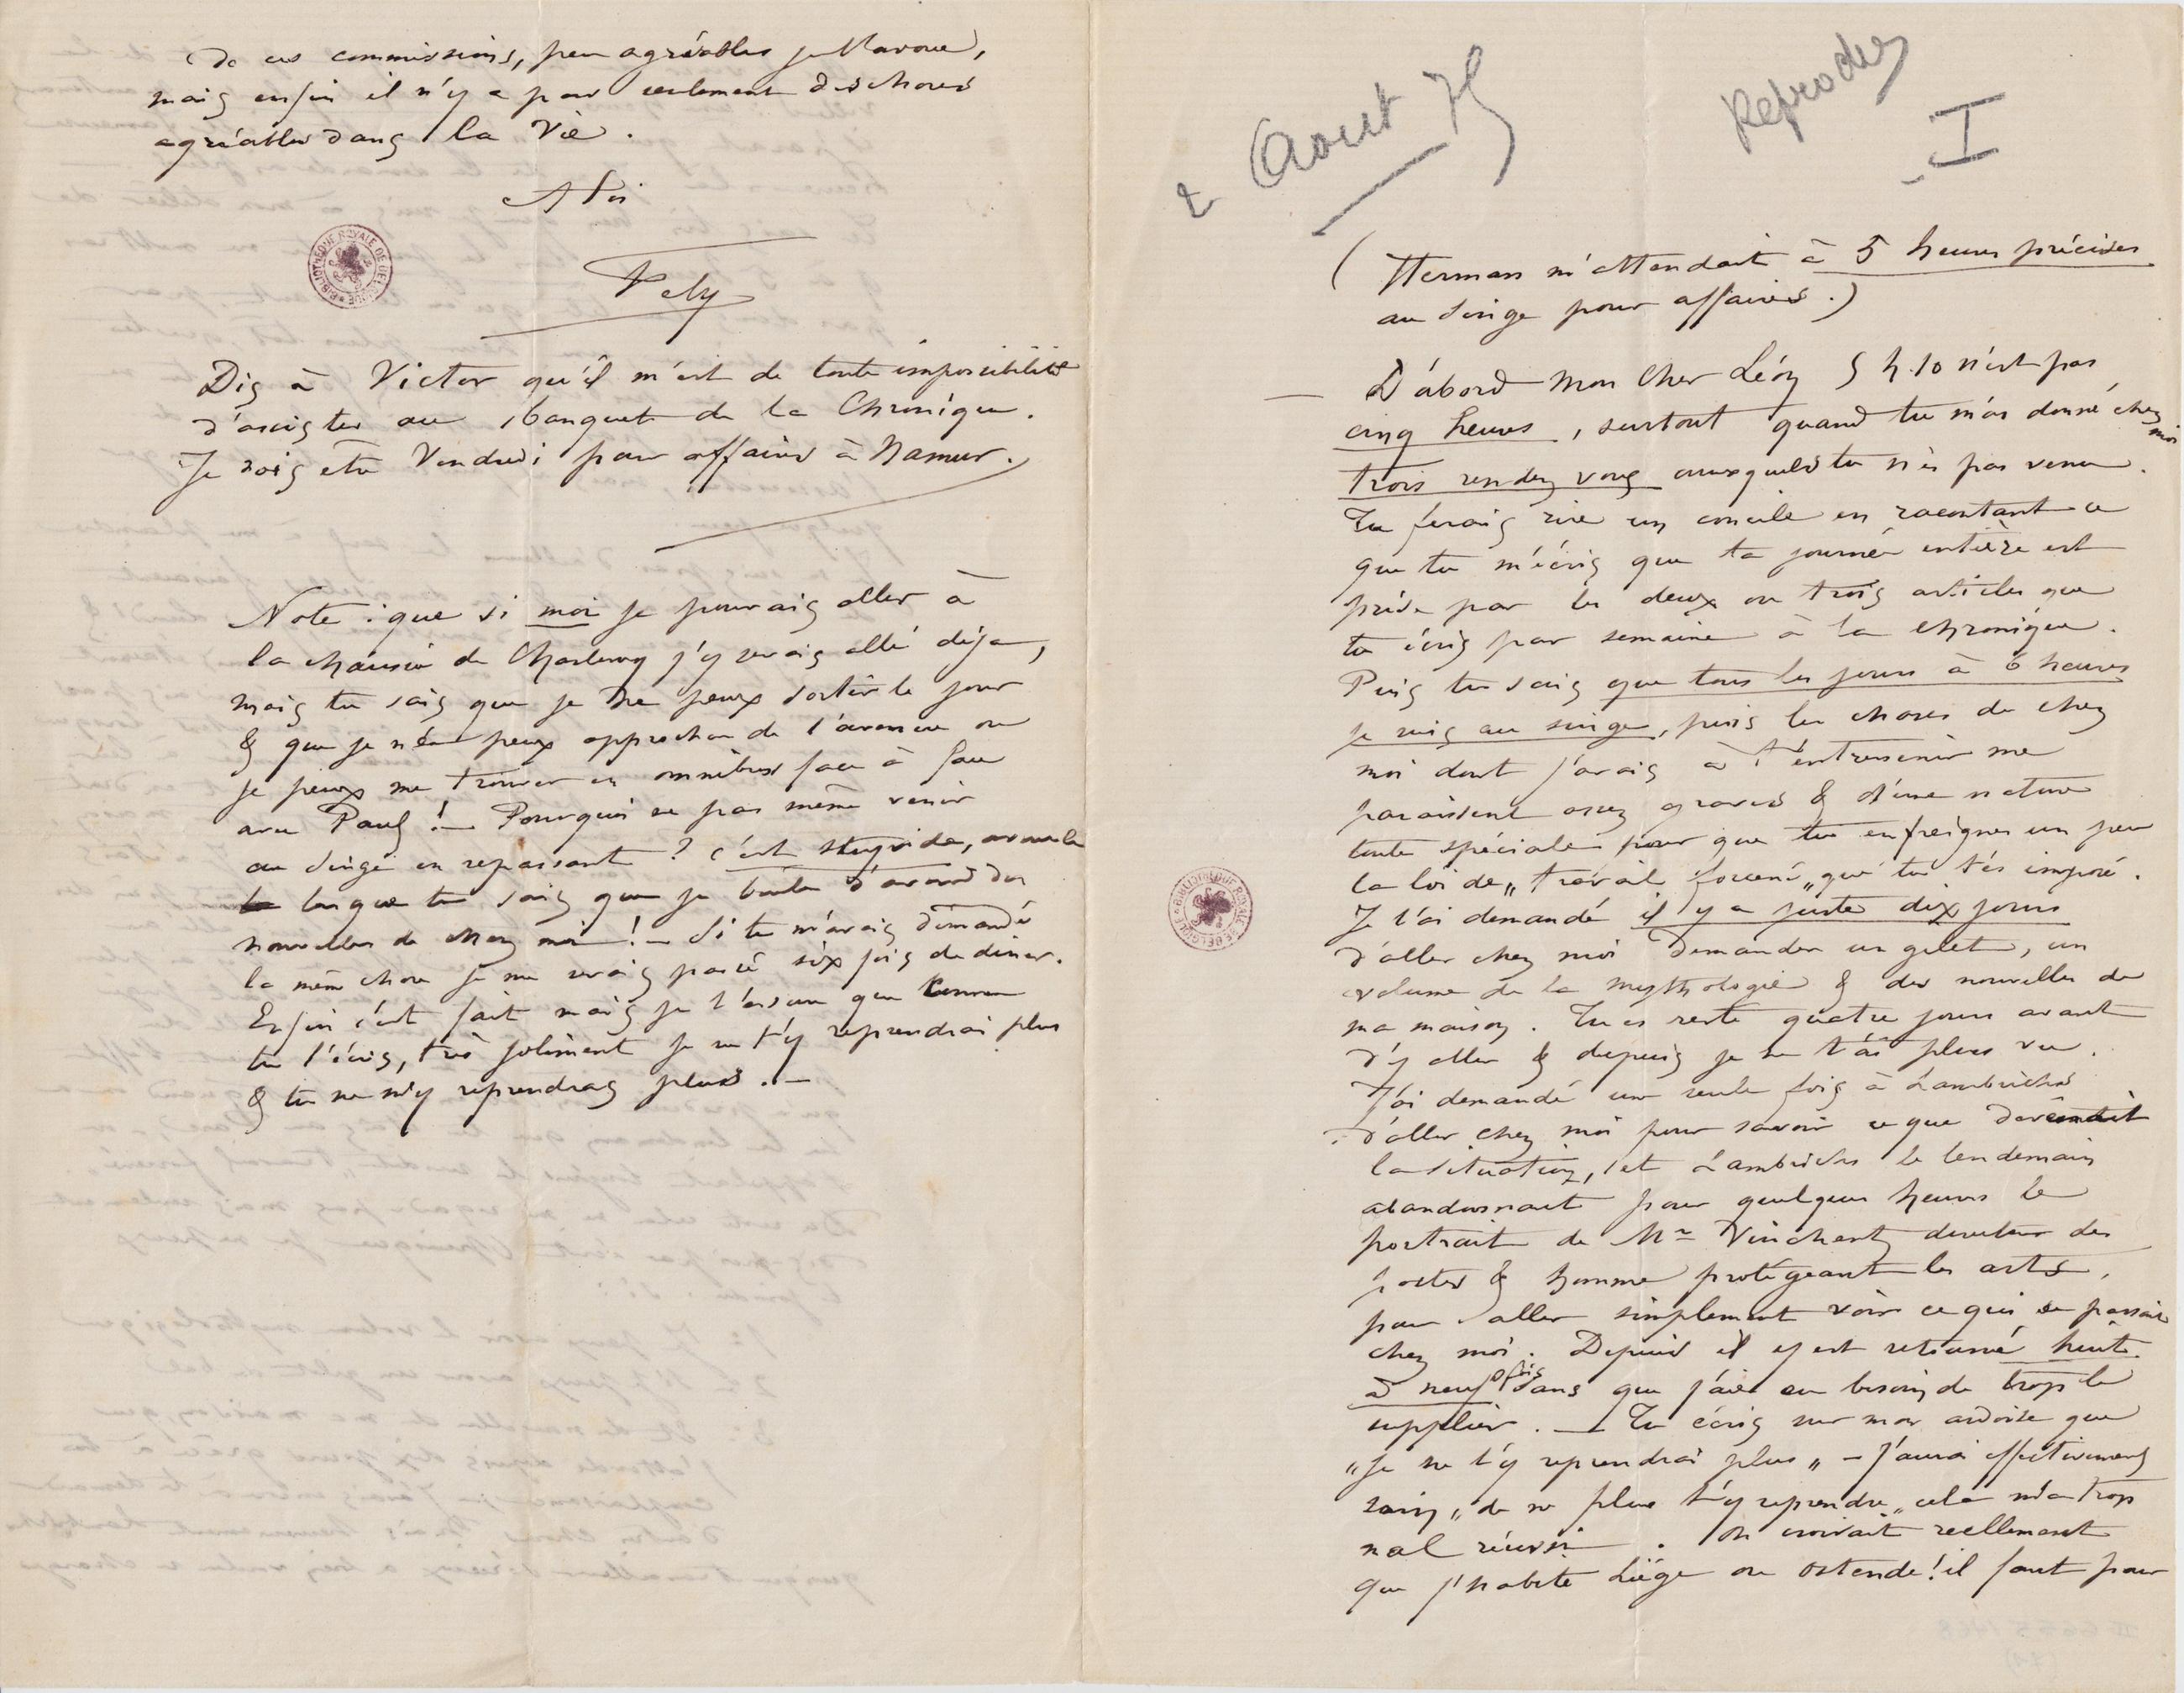 de ces commissions, peu agréables je l'avoue,
mais enfin il n'y a pas seulement des choses
agréables dans la vie.
A toi
Fély
BIBLIOTHEQUE ROYALE DE BELGIQUE
Dis à Victor qu'il m'est de toute impossibilité
d'assister au banquet de la Chronique.
Je vois être Vendredi pour affaires à Namur.
Note : que si moi je pouvais aller à
la chaussée de Charleroy j'y serais allé déja,
mais tu sais que je ne peux sortir le jour
& que je n'en peux approcher de l'avenue ou
je peux me trouver en omnibus face à face
avec Paul ! — Pourquoi ne pas même venir
au Singe en repassant ? c'est stupide,
lorsque tu sais que je brûle d'avoir des
nouvelles de chez moi ! — Si tu m'avais demandé
la même chose je me serais passé six fois de diner.
Enfin c'est fait mais je t'assure que comme
tu l'écris, très joliment je ne t'y reprendrai plus
& tu ne m'y reprendras plus. —
2 Aout 75
Reprodes
I
( Herman m'attendait à 5 heures précises
au Singe pour affaires.)
— D'abord mon cher Léon 5 h. 10 n'est pas
cinq heures, surtout quand tu m'as donné chez moi
trois rendez vous auxquels tu n'es pas venu.
Tu ferais rire un concile en racontant ce
que tu m'écris que ta journée entière est
prise par les deux ou trois articles que
tu écris par semaine à la Chronique.
Puis tu sais que tous les jours à 6 heures
je suis au singe, puis les choses de chez
moi dont j'avais à t'entretenir me
paraissent assez graves & d'une nature
toute spéciale pour que tu enfreignes un peu
la loi de „travail forcené„ que tu t'es imposé.
Je t'ai demandé il y a juste dix jours
d'aller chez moi demander un gilet, un
volume de la mythologie & des nouvelles de
ma maison. Tu es resté quatre jours avant
d'y aller & depuis je ne t'ai plus vu.
J'ai demandé une seule fois à Lambrichs
d'aller chez moi pour savoir ce que devenait
la situation, et Lambrichs le lendemain
abandonnait pour quelques heures le
portrait de Mr Vinchent directeur des
postes & homme protégeant les arts,
pour aller simplement voir ce qui se passait
chez moi. Depuis il y est retourné huit
à neuf fois sans que j'aie eu besoin de trop le
supplier. — Tu écris sur mon ardoise que
„je ne t'y reprendrai plus„ — j'aurai effectivement
soin „de ne plus t'y reprendre„ cela m'a trop
mal réussi. On croirait reellement
que j'habite Liège ou Ostende ! il faut pour
BIBLIOTHEQUE ROYALE DE BELGIQUE